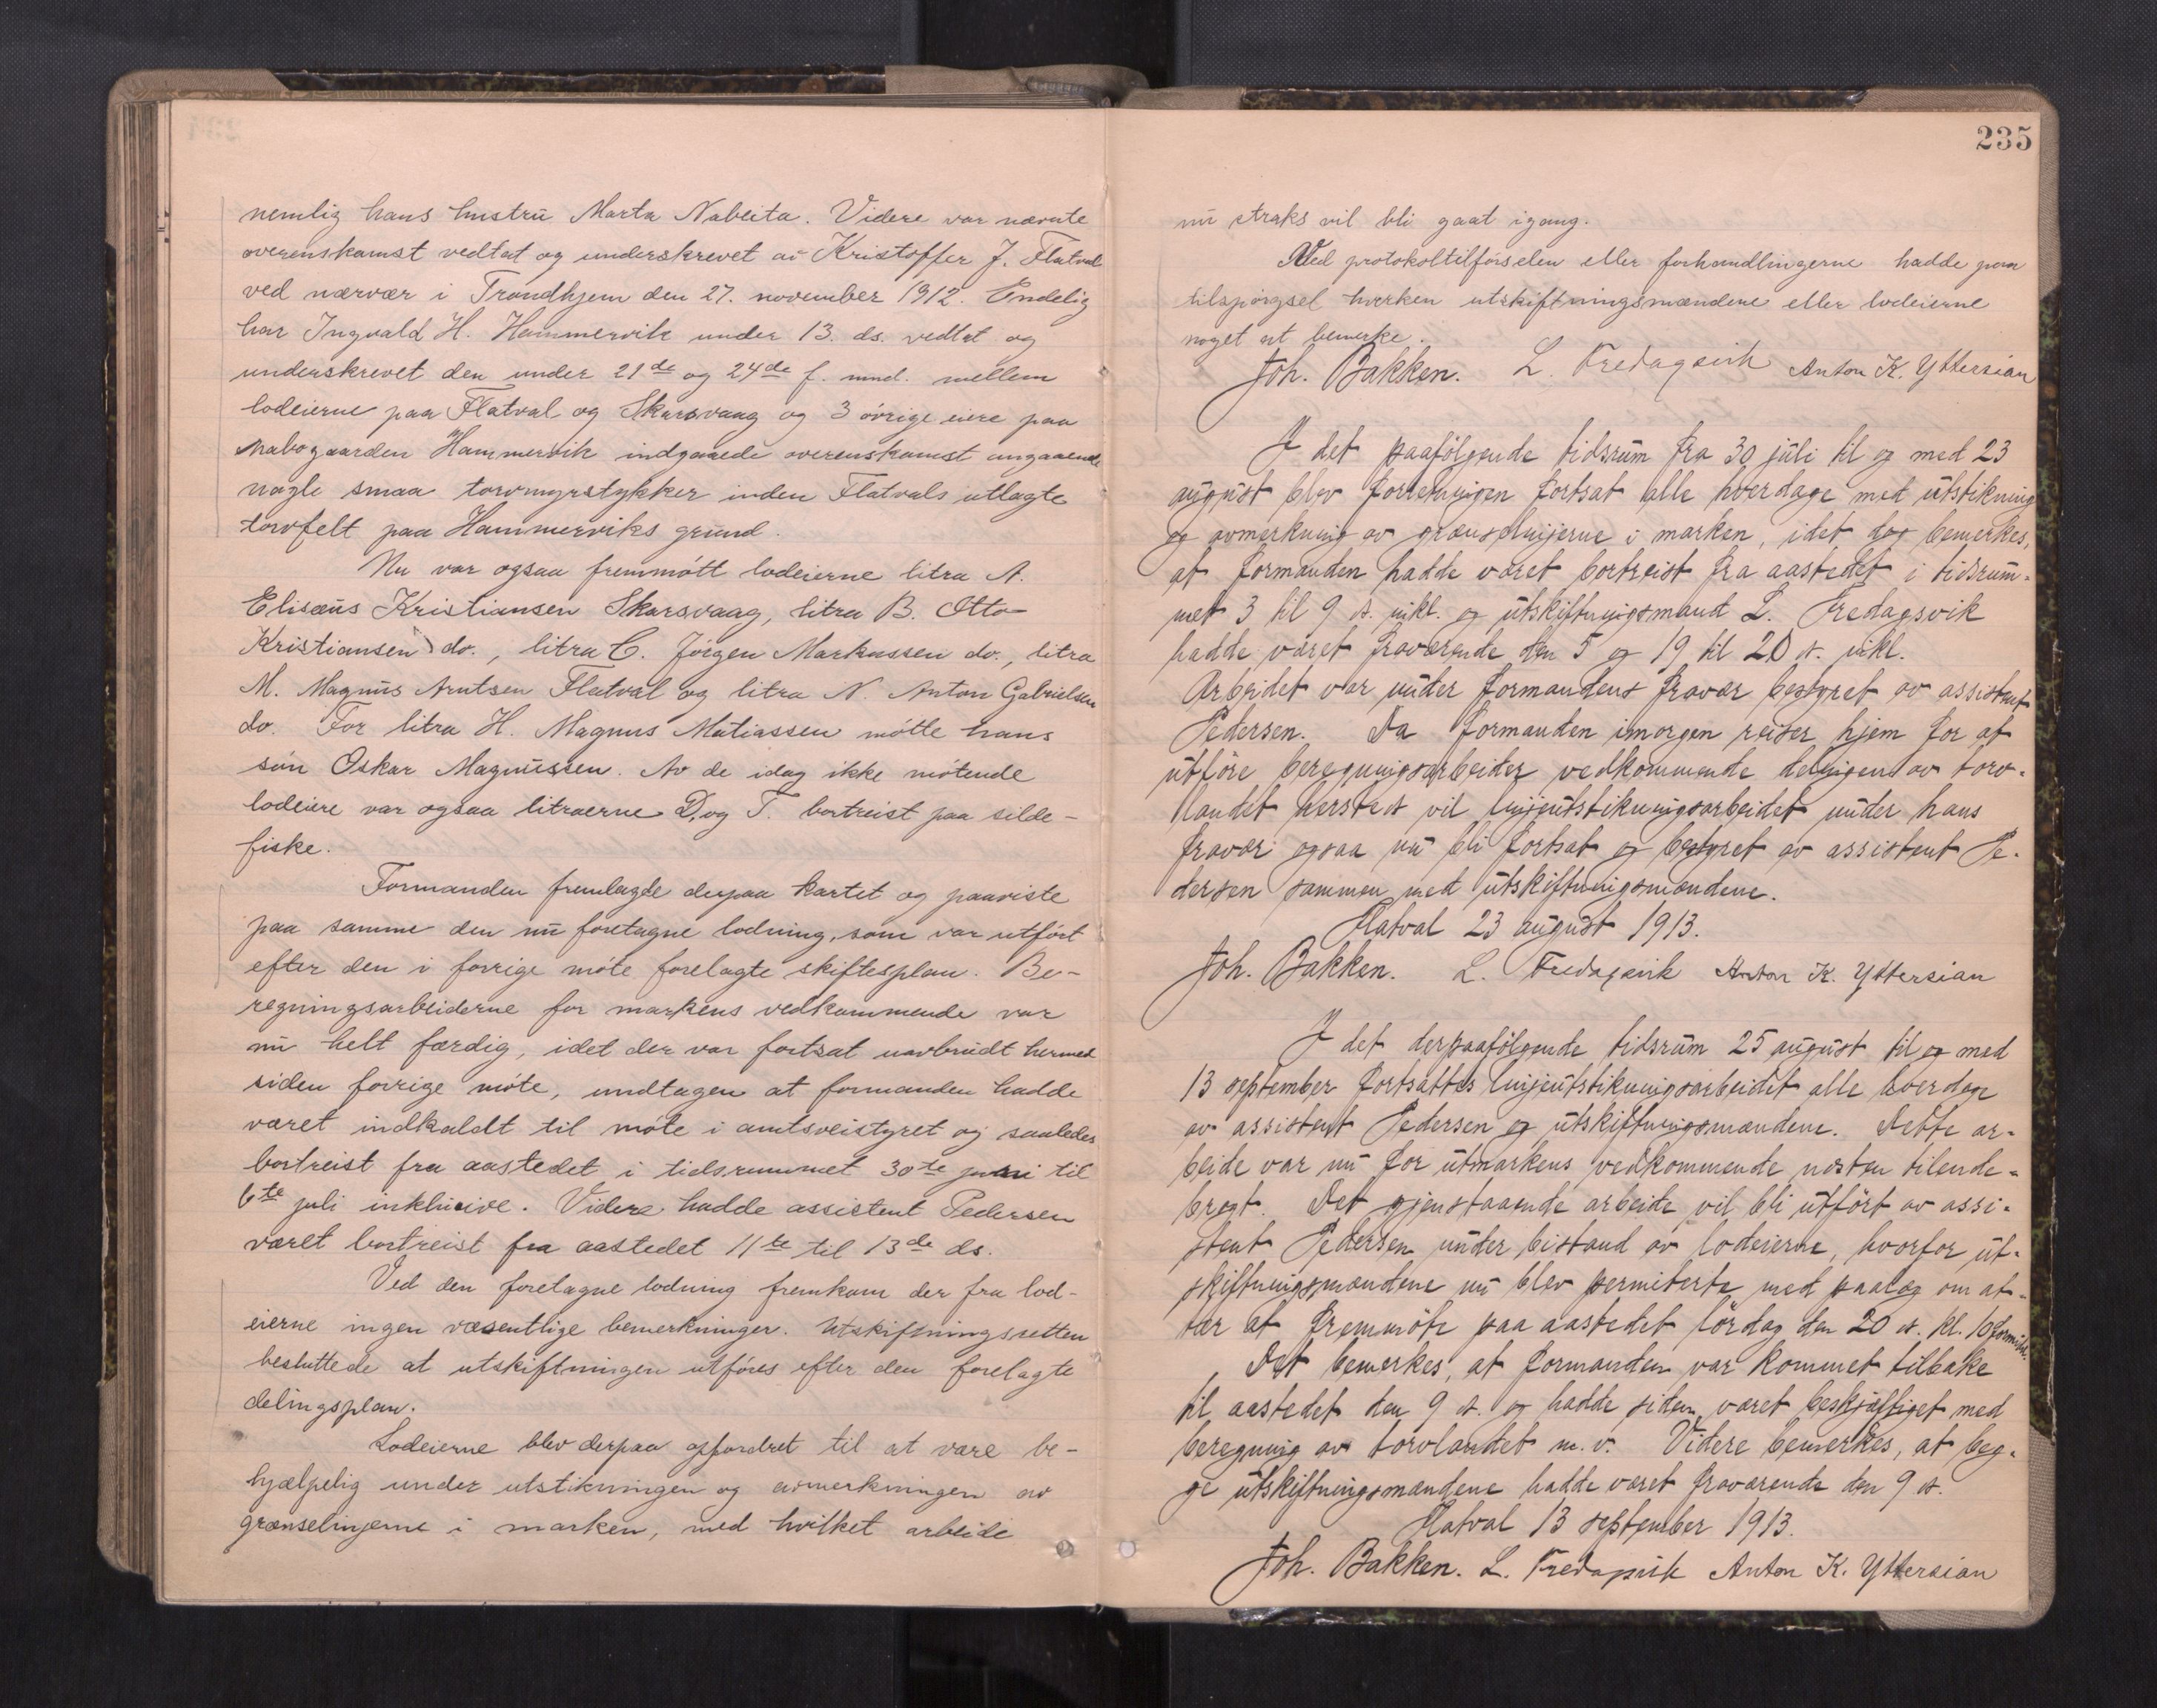 nemlig hans hustru Marta Nabeita. Videre var nævnte
overenskomst vedtat og underskrevet av Kristoffer J. Flatval
ved nærvær i Trondhjem den 27. november 1912. Endelig
har Ingvald H. Hammervik under 13. ds. vedtat og
underskrevet den under 21de og 24de f. mnd. mellem
lodeierne paa Flatval og Skarsvaag og 3 øvrige eiere paa
nabogaarden Hammervik indgaaede overenskomst angaaende
nogle smaa torvmyrstykker inden Flatvals utlagte
torvfelt paa Hammerviks grund.
Nu var ogsaa fremmøtt lodeierne litra A.
Elisæus Kristiansen Skarsvaag, litra B. Otto
Kristiansen do., litra C. Jørgen Markussen do., litra
M. Magnus Arntsen Flatval og litra N. Anton Gabrielsen
do. For litra H. Magnus Matiassen møtte hans
søn Oskar Magnussen. Av de idag ikke møtende
lodeiere var ogsaa litraerne D. og T. bortreist paa silde-
fiske.
Formanden fremlagde derpaa kartet og paaviste
paa samme den nu foretagne lodning, som var utført
efter den i forrige møte forelagte skiftesplan. Be-
regningsarbeiderne for markens vedkommende var
nu helt færdig, idet der var fortsat uavbrudt hermed
siden forrige møte, undtagen at formanden hadde
været indkaldt til møte i amtsveistyret og saaledes
bortreist fra aastedet i tidsrummet 30te juni til
6te juli inklusive. Videre hadde assistent Pedersen
været bortreist fra aastedet 11te til 13de ds.
Ved den foretagne lodning fremkom der fra lod-
eierne ingen væsentlige bemerkninger. Utskiftningsretten
besluttede at utskiftningen utføres efter den forelagte
delingsplan.
Lodeierne blev derpaa opfordret til at være be-
hjælpelig under utstikningen og avmerkningen av
grænselinjerne i marken, med hvilket arbeide
235
nu straks vil bli gaat igang.
Ved protokoltilførselen eller forhandlingerne hadde paa
tilspørgsel hverken utskiftningsmændene eller lodeierne
noget at bemerke.
Joh. Bakken. L. Fredagsvik Anton K. Yttersian
I det paafølgende tidsrum fra 30 juli til og med 23
august blev forretningen fortsat alle hverdage med utstikning
og avmerkning av grænselinjerne i marken, idet dog bemerkes,
at formanden hadde været bortreist fra aastedet i tidsrum-
met 3 til 9 ds. inkl. og utskiftningsmand L. Fredagsvik
hadde været fraværende den 5 og 19 til 20 ds. inkl.
Arbeidet var under formandens fravær bestyret av assistent
Pedersen. Da formanden imorgen reiser hjem for at
utføre beregningsarbeider vedkommende delingen av torv-
landet hersteds vil linjeutstikningsarbeidet under hans
fravær ogsaa nu bli fortsat og bestyret av assistent Pe-
dersen sammen med utskiftningsmændene.
Flatval 23 august 1913.
Joh. Bakken. L. Fredagsvik Anton K. Yttersian
I det derpaafølgende tidsrum 25 august til og med
13 september fortsattes linjeutstikningsarbeidet alle hverdage
av assistent Pedersen og utskiftningsmændene. Dette ar-
beide var nu for utmarkens vedkommende næsten tilende-
bragt. Det gjenstaaende arbeide vil bli utført av assi-
stent Pedersen under bistand av lodeierne, hvorfor ut-
skiftningsmændene nu blev permiterte med paalæg om at-
ter at fremmøte paa aastedet lørdag den 20 ds. kl. 10 formid.
Det bemerkes, at formanden var kommet tilbake
til aastedet den 9 ds. og hadde siden været beskjæftiget med
beregning av torvlandet m.v. Videre bemerkes, at beg-
ge utskiftningsmændene hadde været fraværende den 9 ds.
Flatval 13 september 1913.
Joh. Bakken. L. Fredagsvik Anton K. Yttersian